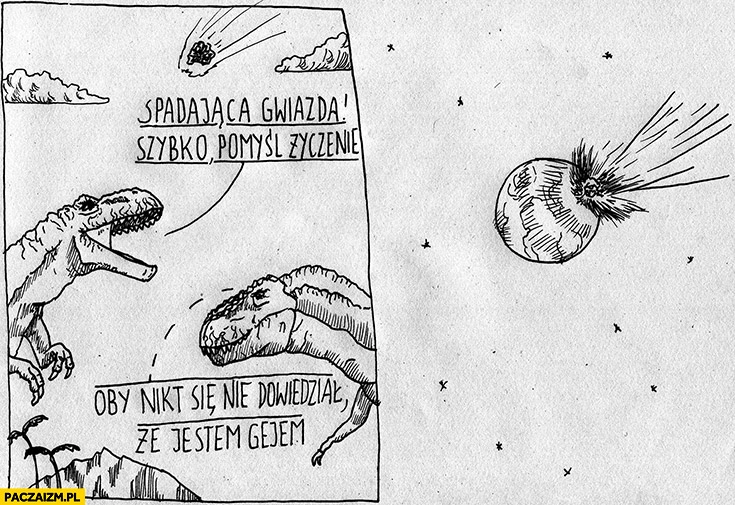 SPADAJĄCA GWIAZDA!
SZYBKO, POMYŚL ŻYCZENIE
OBY NIKT SIĘ NIE DOWIEDZIAŁ,
ŻE JESTEM GEJEM
PACZAIZM.PL